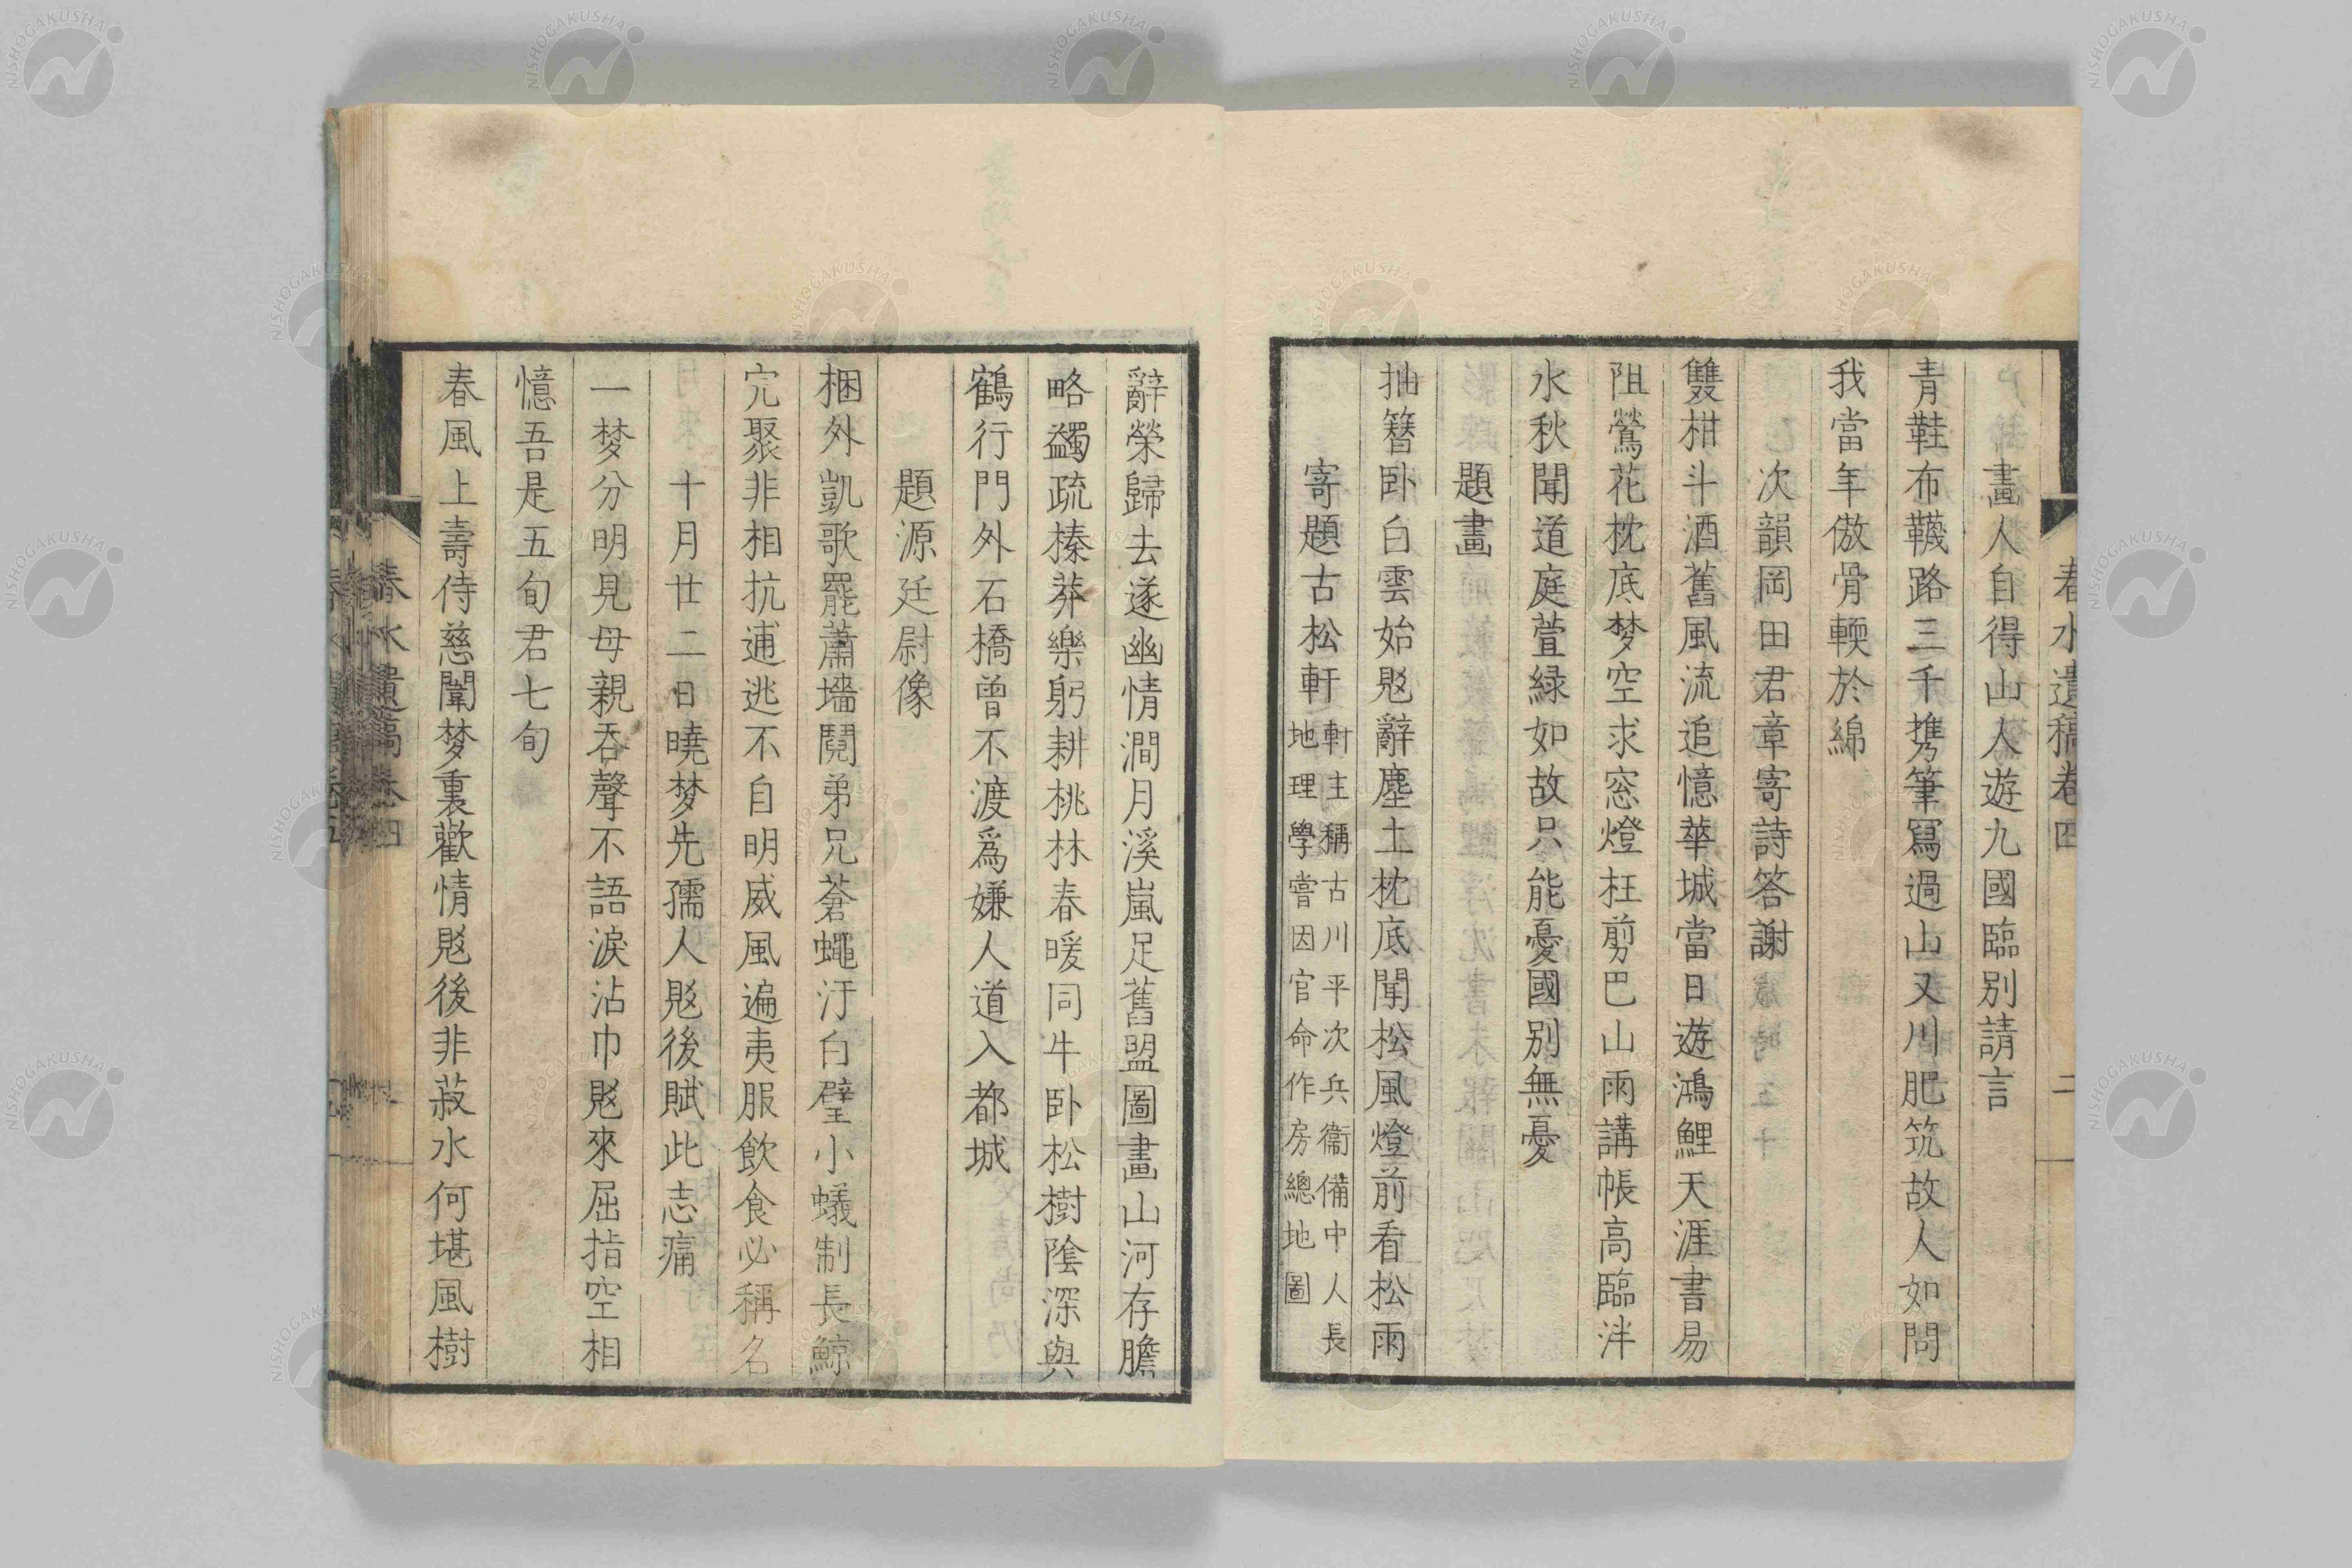 春水遺稿卷四
二
畫人自得山人遊九國臨別請言
青鞋布韈路三千携筆寫過山又川肥筑故人如問
我當年傲骨輭於綿
次韻岡田君章寄詩答謝
雙柑斗酒舊風流追憶華城當日遊鴻鯉天涯書易
阻鶯花枕底梦空求窓燈枉剪巴山雨講帳高臨泮
水秋聞道庭萱緑如故只能憂國別無憂
題畫
抽簪卧白雲始覐辭塵土枕底聞松風燈前看松雨
寄題古松軒
軒主稱古川平次兵衞備中人長
地理學嘗因官命作房總地圖
辭榮歸去遂幽情澗月溪嵐足舊盟圖畫山河存膽
略蠲疏榛莽樂躬耕桃林春暖同牛卧松樹陰深與
鶴行門外石橋曾不渡爲嫌人道入都城
題源廷尉像
梱外凱歌罷蕭墻鬩弟兄蒼蠅汙白璧小蟻制長鯨
宂聚非相抗逋逃不自明威風遍夷服飲食必稱名
十月廿二日曉梦先孺人覐後賦此志痛
一梦分明見母親吞聲不語淚沾巾覐來屈指空相
憶吾是五旬君七旬
春風上壽侍慈闈梦裏歡情覐後非菽水何堪風樹
春水遺稿卷四